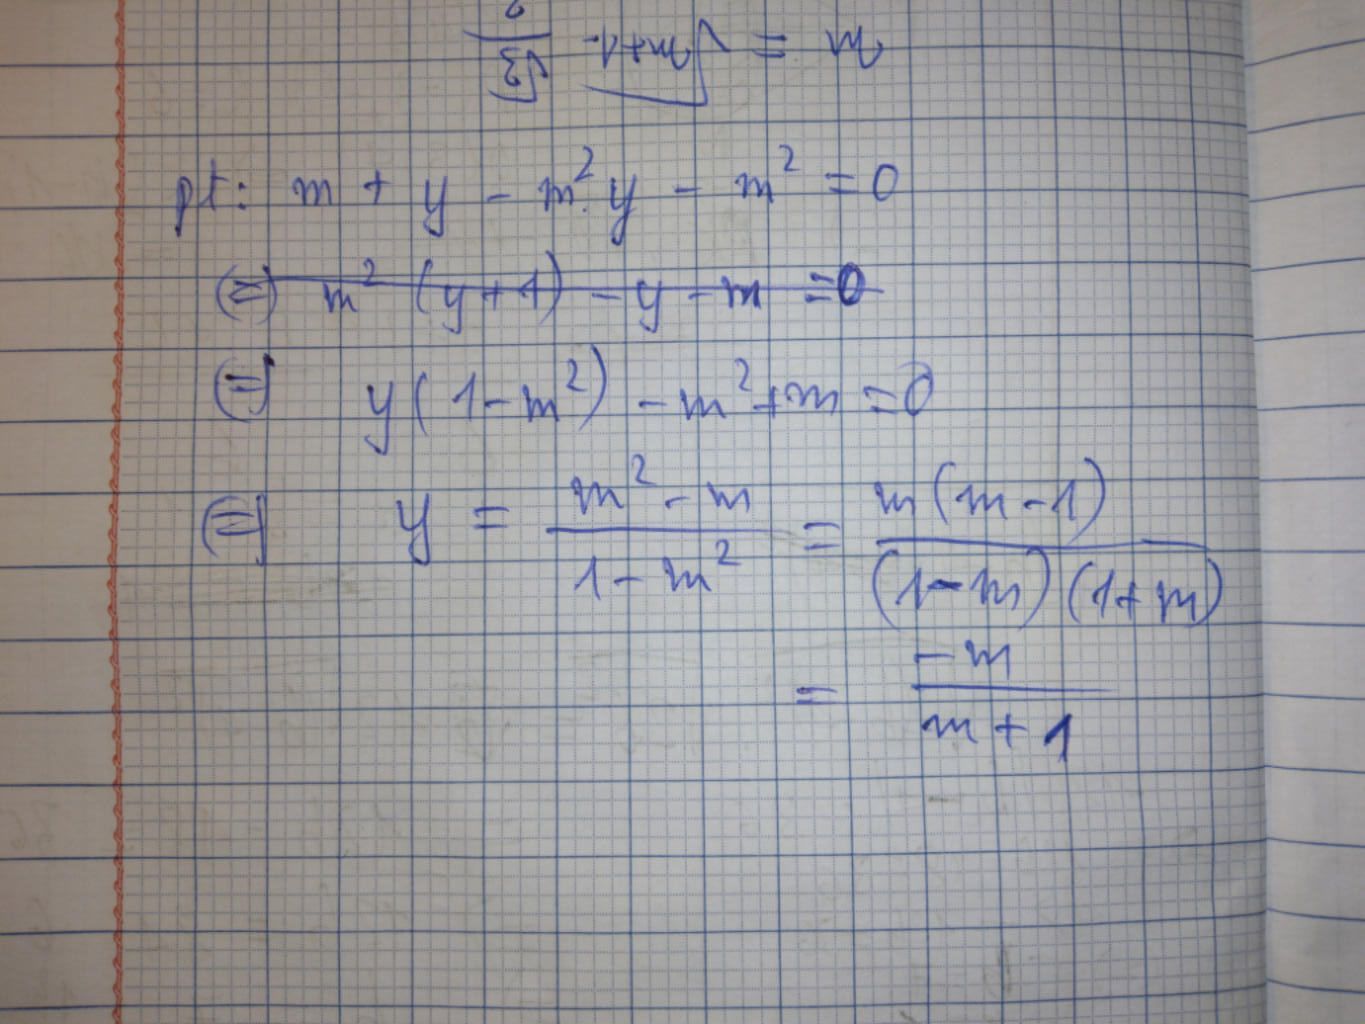 pt: m + y - m². y - m² = 0
(=) m² (y+1) - y - m = 0
(=) y(1-m²) - m² + m = 0
(=) y = \frac{m² - m}{1 - m²} = \frac{m(m-1)}{(1-m)(1+m)}
= \frac{-m}{m+1}